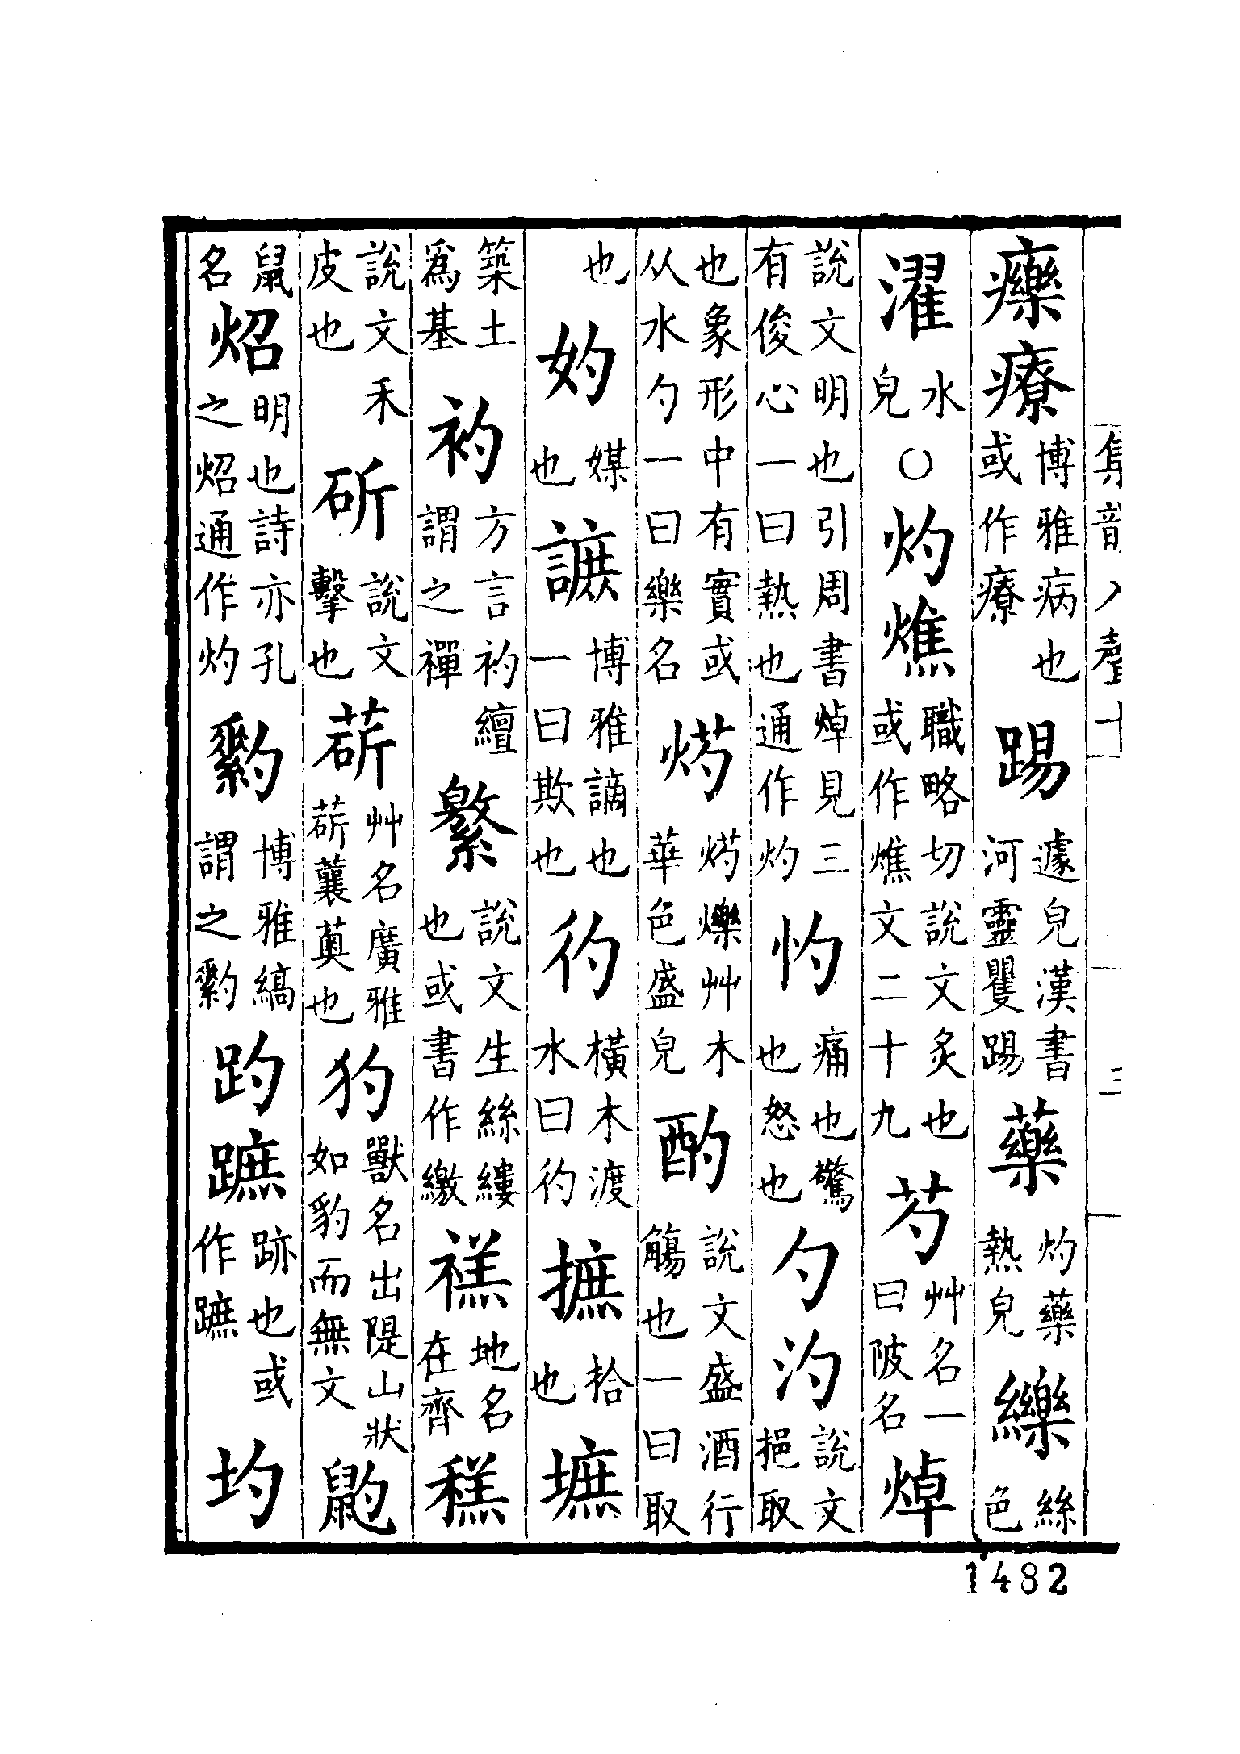 集韻入聲十
三
𤻲療博雅病也或作療踢遽皃漢書河靈矍踢藥灼藥熱皃纅絲色
濯水皃○灼燋職略切說文炙也或作燋文二十九芍艸名一曰陂名焯
說文明也引周書焯見三有俊心一曰熱也通作灼灼痛也驚也怒也勺汋說文挹取
也象形中有實或从水勺一曰樂名㷹㷹爍艸木華色盛皃酌說文盛酒行觴也一曰取
也妁媒也謶博雅謫也一曰欺也彴橫木渡水曰彴摭拾也墌
築土爲基袀方言袀繵謂之襌繁說文生絲縷也或書作繳禚地名在齊穛
說文禾皮也斫說文擊也䓸艸名廣雅䓸蘘䓻也犳獸名出隄山狀如豹而無文鼩
鼠名炤明也詩亦孔之炤通作灼䵠博雅縞謂之䵠趵蹠跡也或作蹠圴
1482